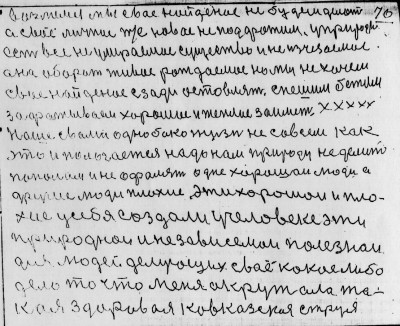 76
мы свае найденае не будем делит
а своё личное тже новае не поддражим. У природы
есть все не умираемае существо и не изчезаемое.
она оборот живое рождаемое но мы не хочем
свае найденае сзади оставлят, спешим бежим
захватываем хорошие и теплые заимет. XXXXX
наше с вами однобоко жузн не совсем как
это и пологается надо нам природу не делит
пополам и не офралят одне хорошаи люди а
другие люди плохие. Эти хорошои и пло-
хие у себя создали у человека эти
природнои и независемои полезнаи
для людей делующих своё какое либо
дело то что меня окружала та-
кая здаровая Кавказская струя